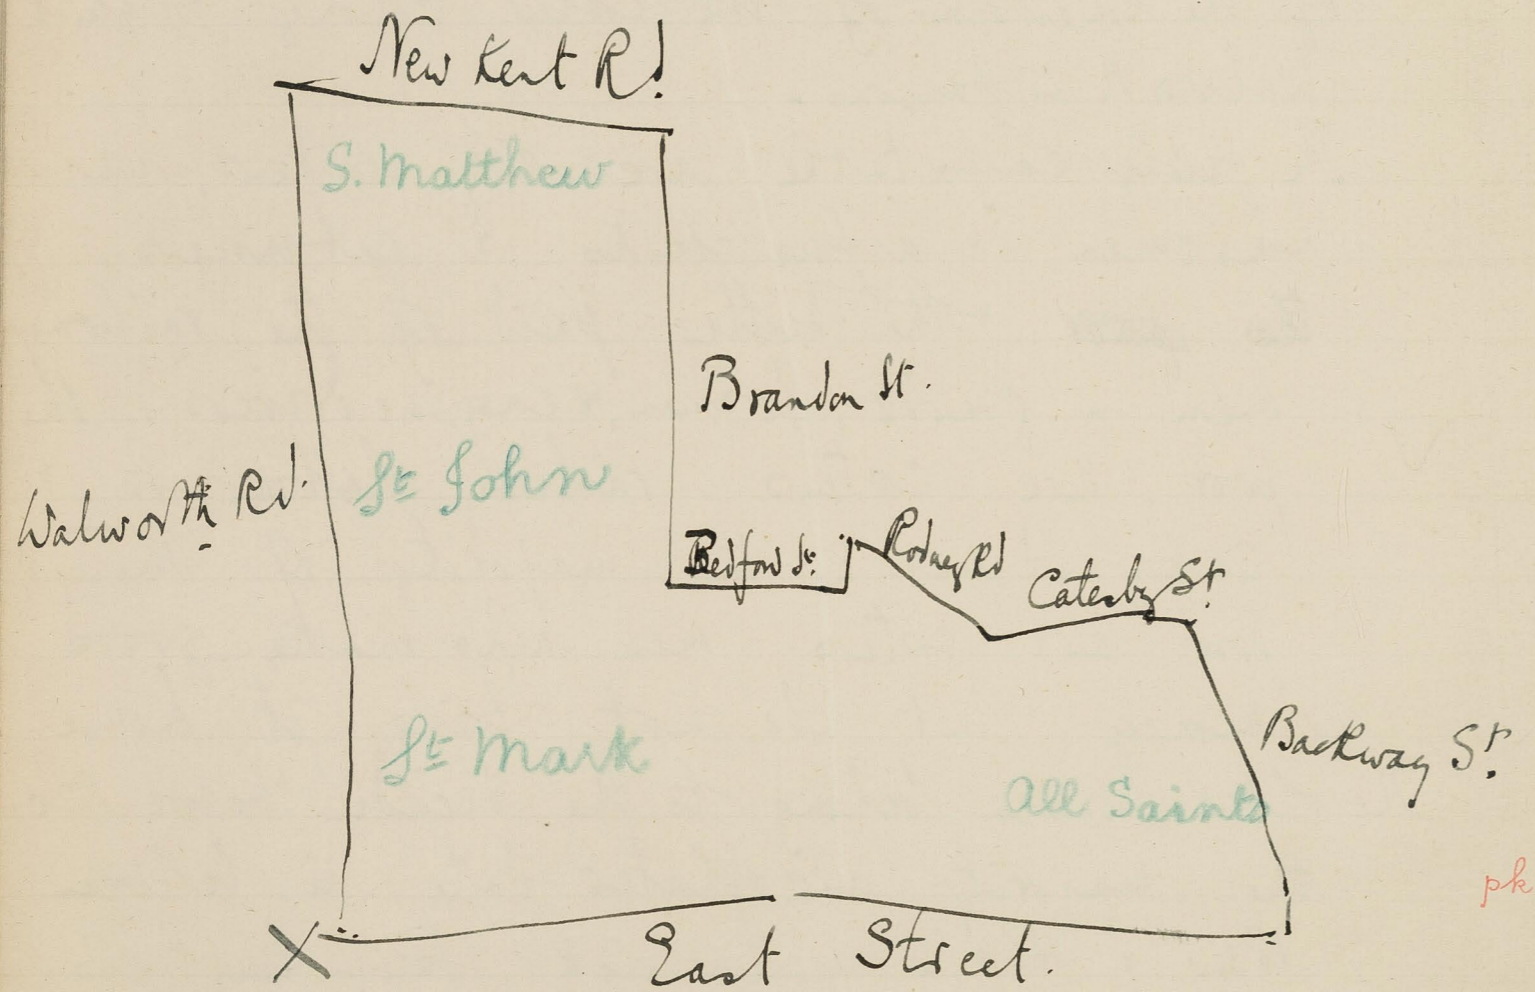 New Kent Rd.
S. Matthew
Brandon St.
Walworth Rd.
St John
Bedford St.
Rodney Rd
Catesby St.
St Mark
Backway St.
All Saints
pk
X
East Street.